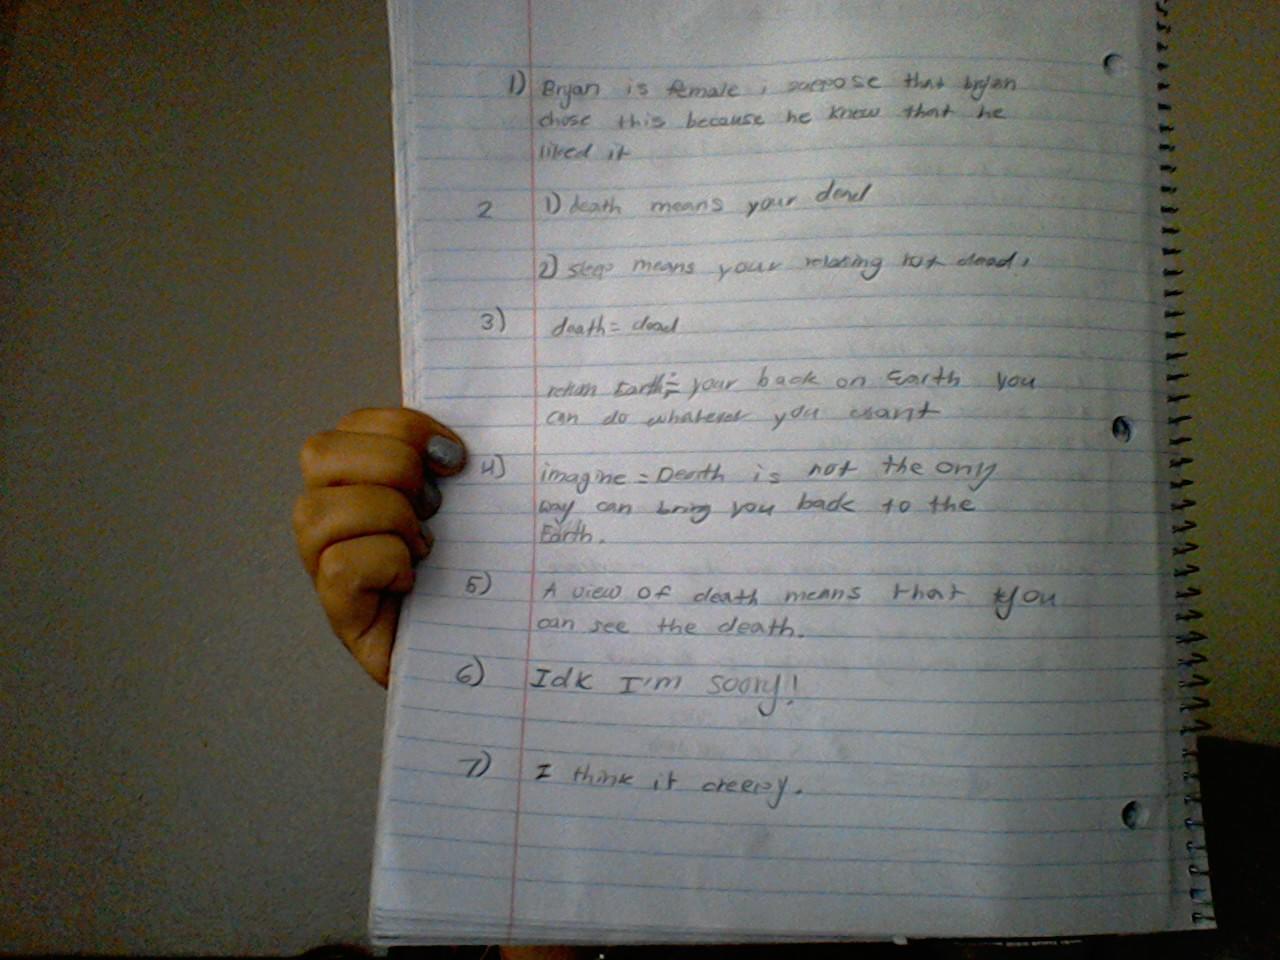 1) Bryan is female, i suppose that bryan
chose this because he knew that he
liked it
2 1) death means your dead
2) sleep means your relaxing not dead.
3) death = dead
return Earth = your back on Earth you
can do whatever you want
4) imagine = Death is not the only
way can bring you back to the
Earth.
5) A view of death means that you
can see the death.
6) Idk I'm soory!
7) I think it creepy.